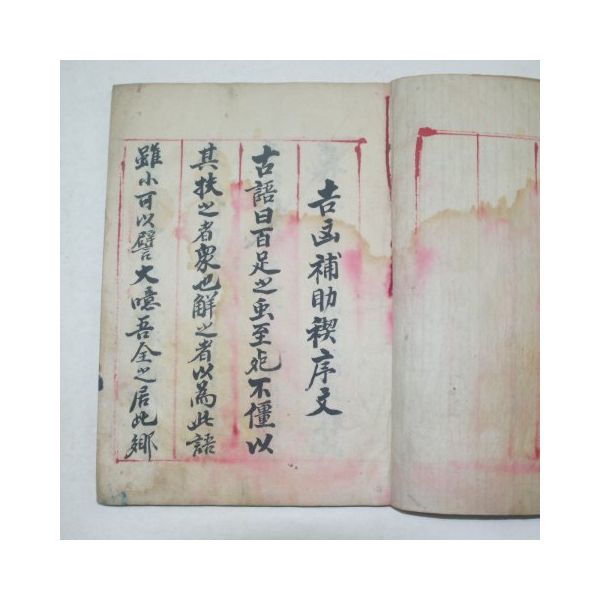 吉凶補助稧序文
古語曰百足之虫至死不僵以
其扶之者衆也觧之者以爲此語
雖小可以譬大噫吾全之居此鄕